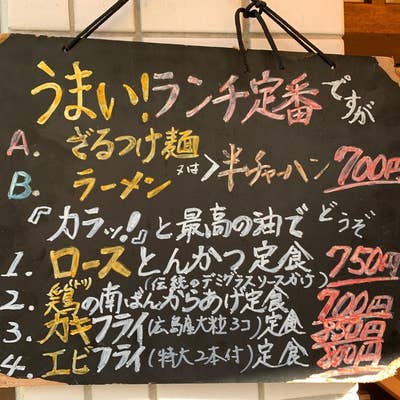 うまい!ランチ定番ですが
A. ざるつけ麺
又は>半チャーハン 700円
B. ラーメン
『カラッ!』と最高の油でどうぞ
1. ロースとんかつ定食 750円
(伝統のデミグラスソースかけ)
2. 鶏(トリ)の南ばんからあげ定食 700円
3. カキフライ(広島産大粒3コ)定食 850円
4. エビフライ(特大2本付)定食